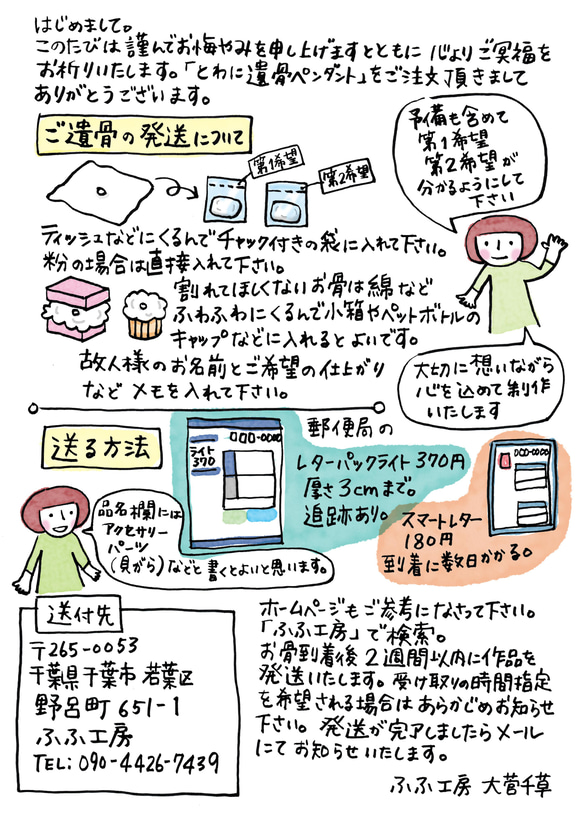 はじめまして。
このたびは謹んでお悔やみを申し上げますとともに心よりご冥福を
お祈りいたします。「とわに遺骨ペンダント」をご注文頂きまして
ありがとうございます。
ご遺骨の発送について
第1希望
第2希望
予備も含めて
第1希望
第2希望が
分かるようにして
下さい
ティッシュなどにくるんでチャック付きの袋に入れて下さい。
粉の場合は直接入れて下さい。
割れてほしくないお骨は綿など
ふわふわにくるんで小箱やペットボトルの
キャップなどに入れるとよいです。
故人様のお名前とご希望の仕上がり
などメモを入れて下さい。
大切に想いながら
心を込めて制作
いたします
送る方法
ライト
370
〒000-0000
郵便局の
レターパックライト370円
厚さ3cmまで。
追跡あり。
000-0000
スマートレター
180円
到着に数日かかる。
品名欄には
アクセサリー
パーツ
(貝がら)などと書くとよいと思います。
送付先
〒265-0053
千葉県千葉市若葉区
野呂町651-1
ふふ工房
TEL: 090-4426-7439
ホームページもご参考になさって下さい。
「ふふ工房」で検索。
お骨到着後2週間以内に作品を
発送いたします。受け取りの時間指定
を希望される場合はあらかじめお知らせ
下さい。発送が完了しましたらメール
にてお知らせいたします。
ふふ工房 大菅千草